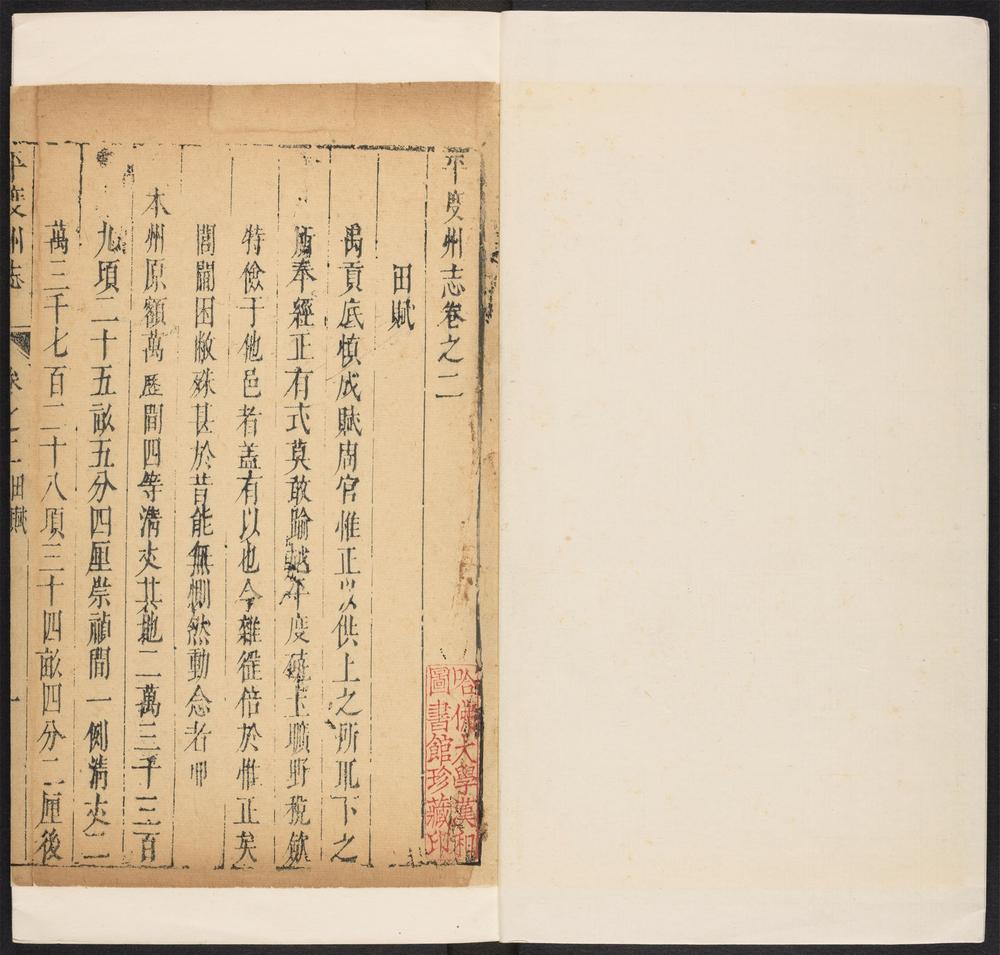 平度州志卷之二
田賦
禹貢底慎成賦周官惟正以供上之所取下之
所奉經正有式莫敢踰越平度磽土曠野稅歛
特儉于他邑者盖有以也今雜徭倍於惟正矣
閭閻困敝殊甚於昔能無惻然動念者
本州原額萬歷間四等清丈其地二萬三千三百
九項二十五畝五分四厘崇禎間一例清丈二
萬三千七百二十八項三十四畝四分二厘後
平度州志
卷之二田賦
一
哈佛大學漢和
圖書館珍藏印